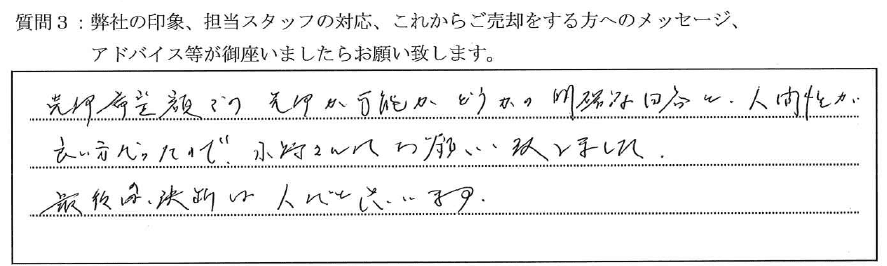 質問3:弊社の印象、担当スタッフの対応、これからご売却をする方へのメッセージ、
アドバイス等が御座いましたらお願い致します。
売却希望額での売却が可能かどうかの明確な回答と、人間性が
良い方だったので、水野さんにお願い致しました。
最後の決断は人だと思います。